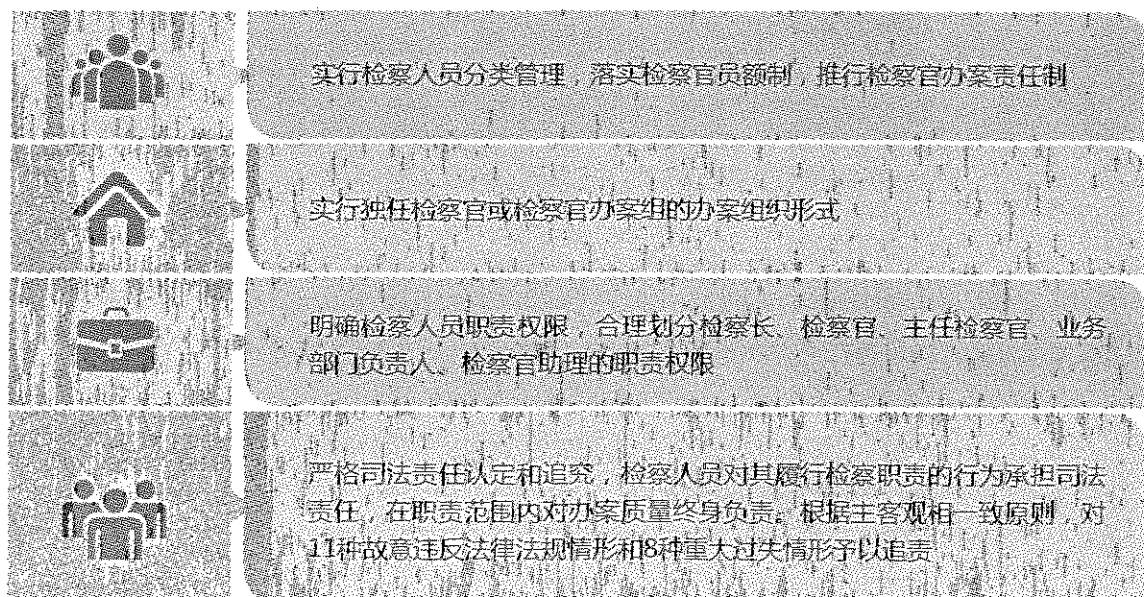 实行检察人员分类管理，落实检察官员额制，推行检察官办案责任制
实行独任检察官或检察官办案组的办案组织形式
明确检察人员职责权限，合理划分检察长、检察官、主任检察官、业务
部门负责人、检察官助理的职责权限
严格司法责任认定和追究，检察人员对其履行检察职责的行为承担司法
责任，在职责范围内对办案质量终身负责。根据主客观相一致原则，对
11种故意违反法律法规情形和8种重大过失情形予以追责